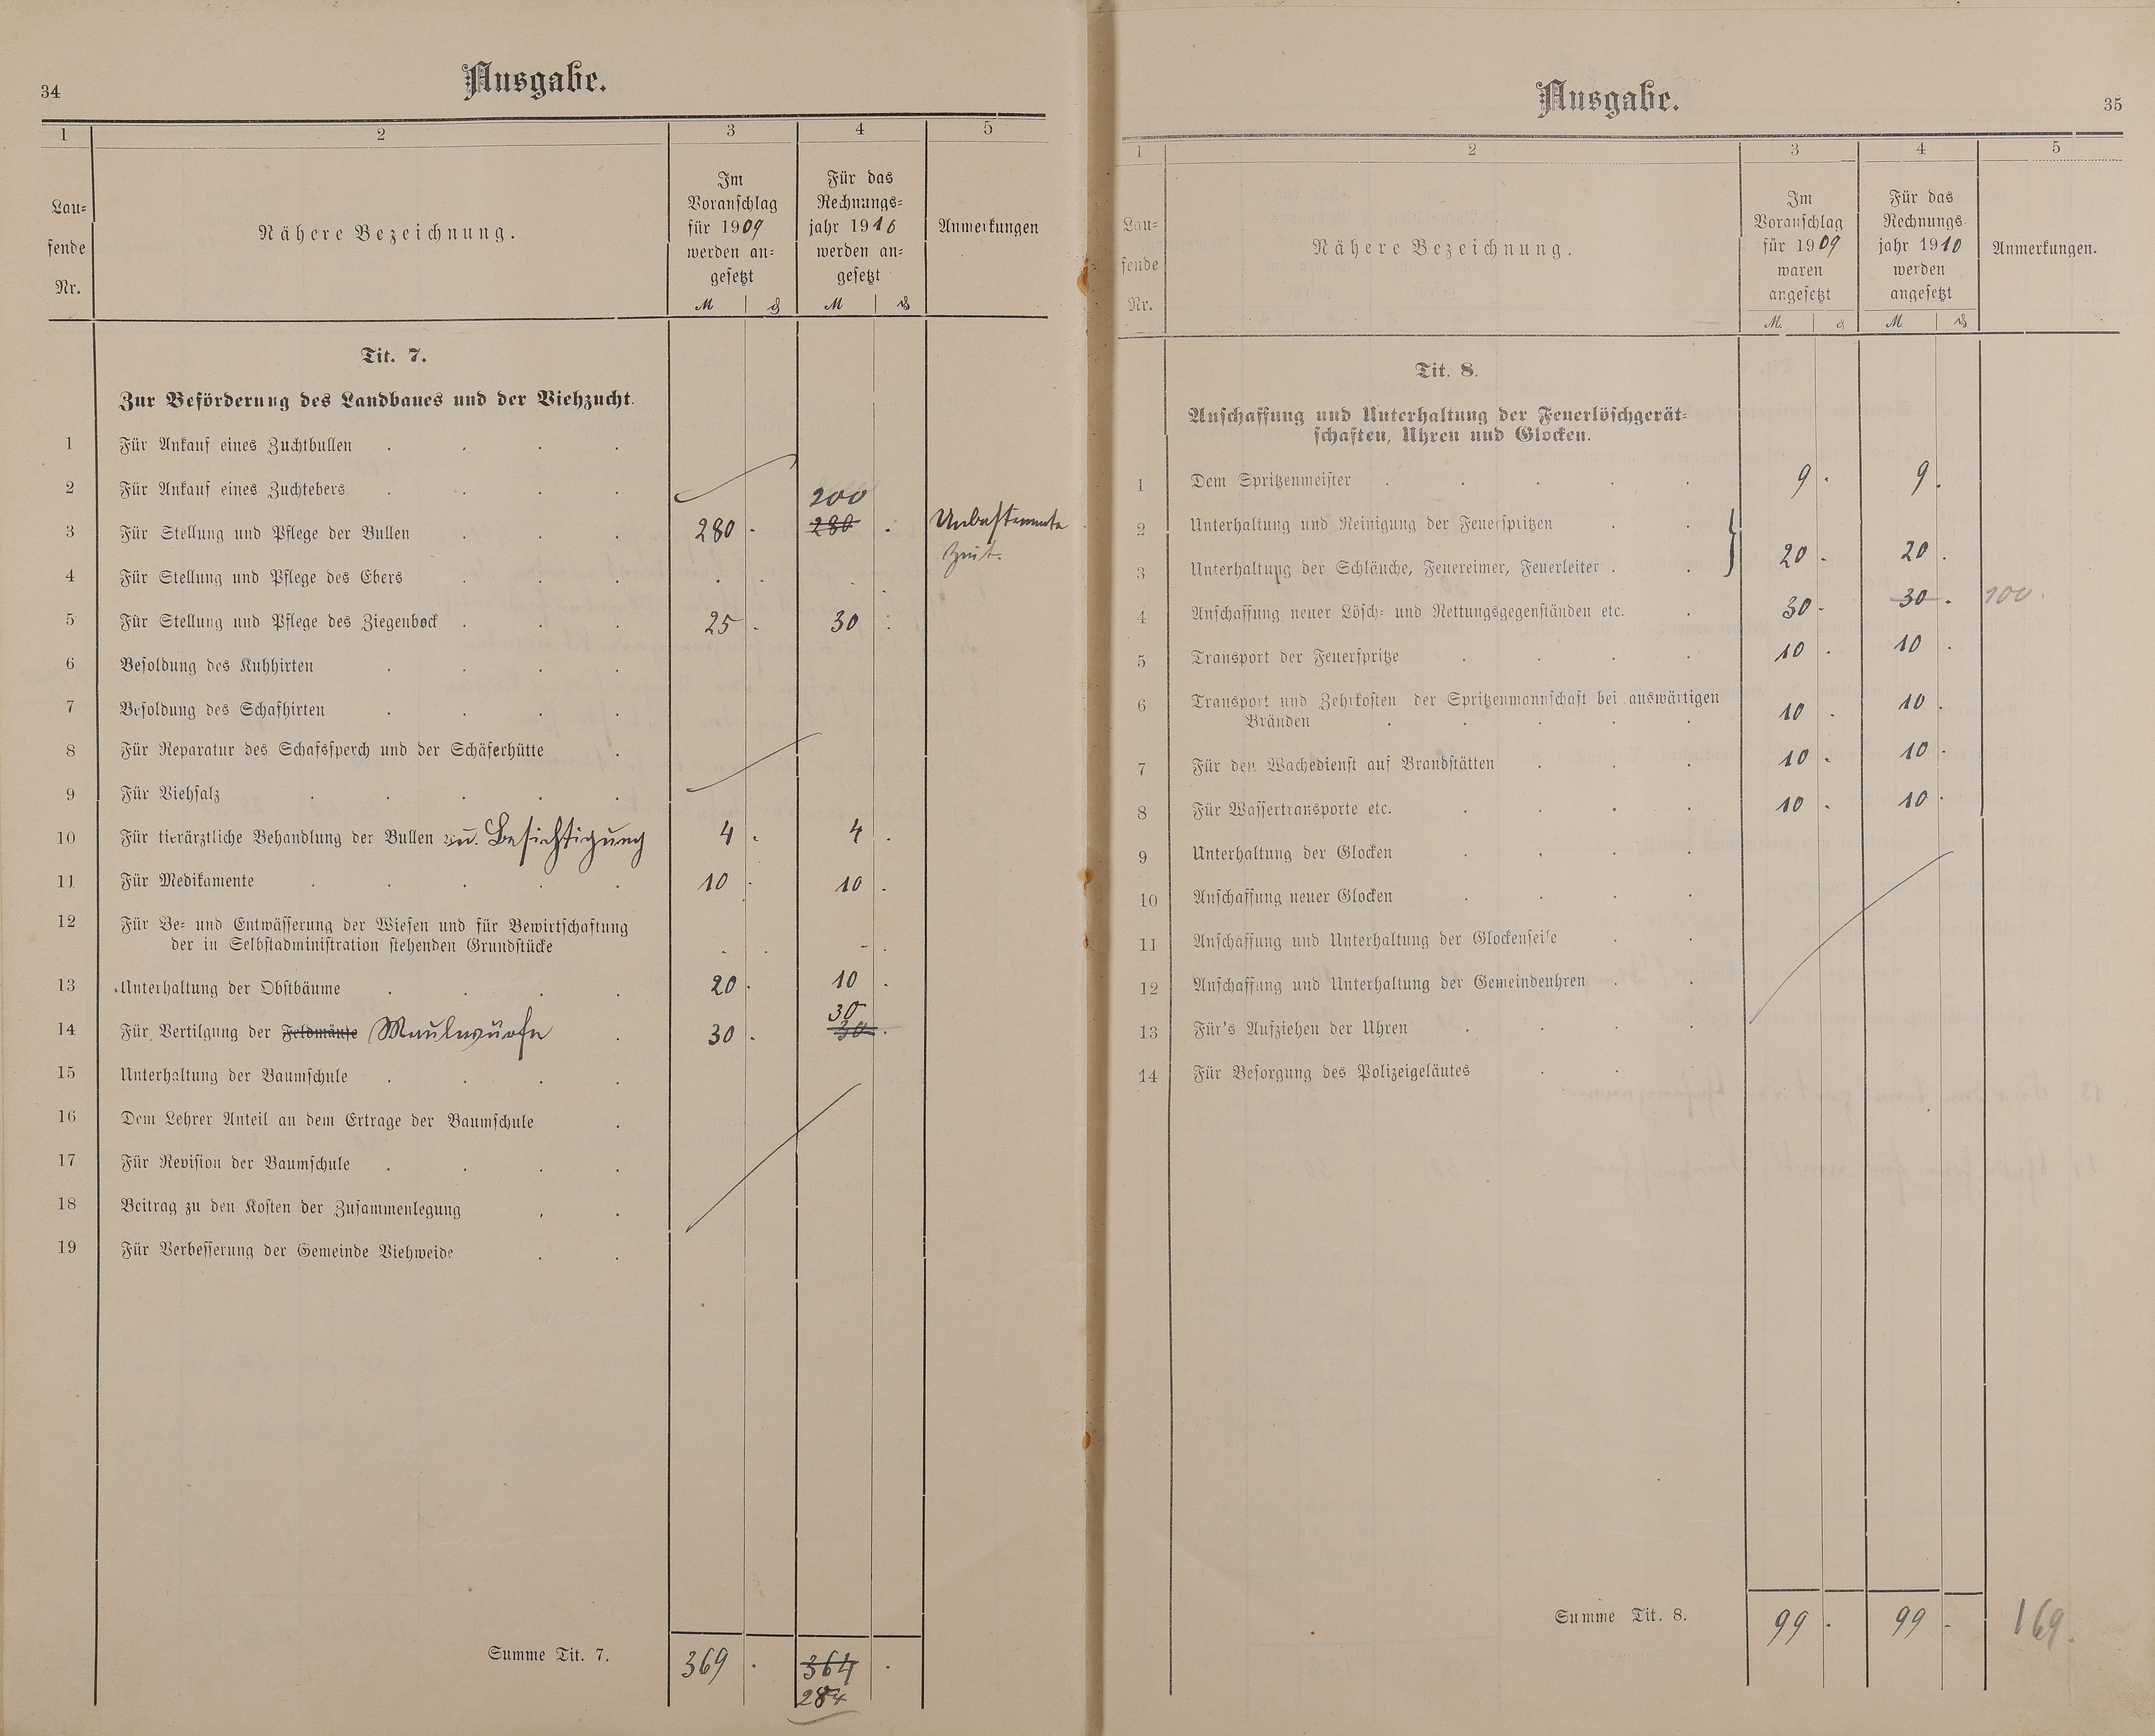 34
Ausgabe.
1 2 3 4 5
Lau-
fende
Nr.
Nähere Bezeichnung.
Im
Voranschlag
für 1909
werden an-
gesetzt
M ₰
Für das
Rechnungs-
jahr 1910
werden an-
gesetzt
M ₰
Anmerkungen
Tit. 7.
Zur Beförderung des Landbaues und der Viehzucht.
1 Für Ankauf eines Zuchtbullen
2 Für Ankauf eines Zuchtebers
200
3 Für Stellung und Pflege der Bullen 280 . 280 . Unbestimmte
Zeit.
4 Für Stellung und Pflege des Ebers . . .
5 Für Stellung und Pflege des Ziegenbock 25 . 30 .
6 Besoldung des Kuhhirten
7 Besoldung des Schafhirten
8 Für Reparatur des Schafsperch und der Schäferhütte
9 Für Viehsalz
10 Für tierärztliche Behandlung der Bullen u. Besichtigung 4 . 4 .
11 Für Medikamente 10 . 10 .
12 Für Be- und Entwässerung der Wiesen und für Bewirtschaftung
der in Selbstadministration stehenden Grundstücke . . - .
13 Unterhaltung der Obstbäume 20 . 10 .
30
14 Für Vertilgung der Feldmäuse Maulwürfe 30 . 30 .
15 Unterhaltung der Baumschule
16 Dem Lehrer Anteil an dem Ertrage der Baumschule
17 Für Revision der Baumschule
18 Beitrag zu den Kosten der Zusammenlegung
19 Für Verbesserung der Gemeinde Viehweide
Summe Tit. 7. 369 . 364 .
284
Ausgabe.
35
1 2 3 4 5
Lau-
fende
Nr.
Nähere Bezeichnung.
Im
Voranschlag
für 1909
waren
angesetzt
M. ₰
Für das
Rechnungs-
jahr 1910
werden
angesetzt
M. ₰
Anmerkungen.
Tit. 8.
Anschaffung und Unterhaltung der Feuerlöschgerät-
schaften, Uhren und Glocken.
1 Dem Spritzenmeister 9 . 9 .
2 Unterhaltung und Reinigung der Feuerspritzen
3 Unterhaltung der Schläuche, Feuereimer, Feuerleiter } 20 . 20 .
4 Anschaffung neuer Lösch- und Rettungsgegenständen etc. 30 . 30 . 100.
5 Transport der Feuerspritze 10 . 10 .
6 Transport und Zehrkosten der Spritzenmannschaft bei auswärtigen
Bränden 10 . 10 .
7 Für den Wachedienst auf Brandstätten 10 . 10 .
8 Für Wassertransporte etc. 10 . 10 .
9 Unterhaltung der Glocken
10 Anschaffung neuer Glocken
11 Anschaffung und Unterhaltung der Glockenseile
12 Anschaffung und Unterhaltung der Gemeindeuhren
13 Für's Aufziehen der Uhren
14 Für Besorgung des Polizeigeläutes
Summe Tit. 8. 99 . 99 . 169.